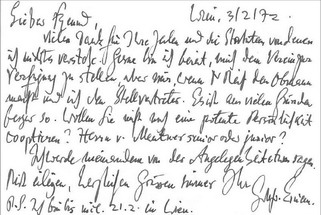 Lieber Freund, Wien, 3/2/72.
Vielen Dank für Ihre Zeilen und die Statuten von denen
ich nichts verstehe. Gerne bin ich bereit, mich dem Verein zur
Verfügung zu stellen, aber nur, wenn N Rief den Obmann
macht und ich den Stellvertreter. Es ist aus vielen Gründen
besser so. Wollen Sie nicht auf eine potente Persönlichkeit
cooptieren? Herrn v. senior oder junior?
Ich werde niemandem von der Angelegenheit etwas sagen.
Mit eiligen, herzlichen Grüssen immer Ihr
P.S. Ich bin bis mit. 21.2. in Wien.